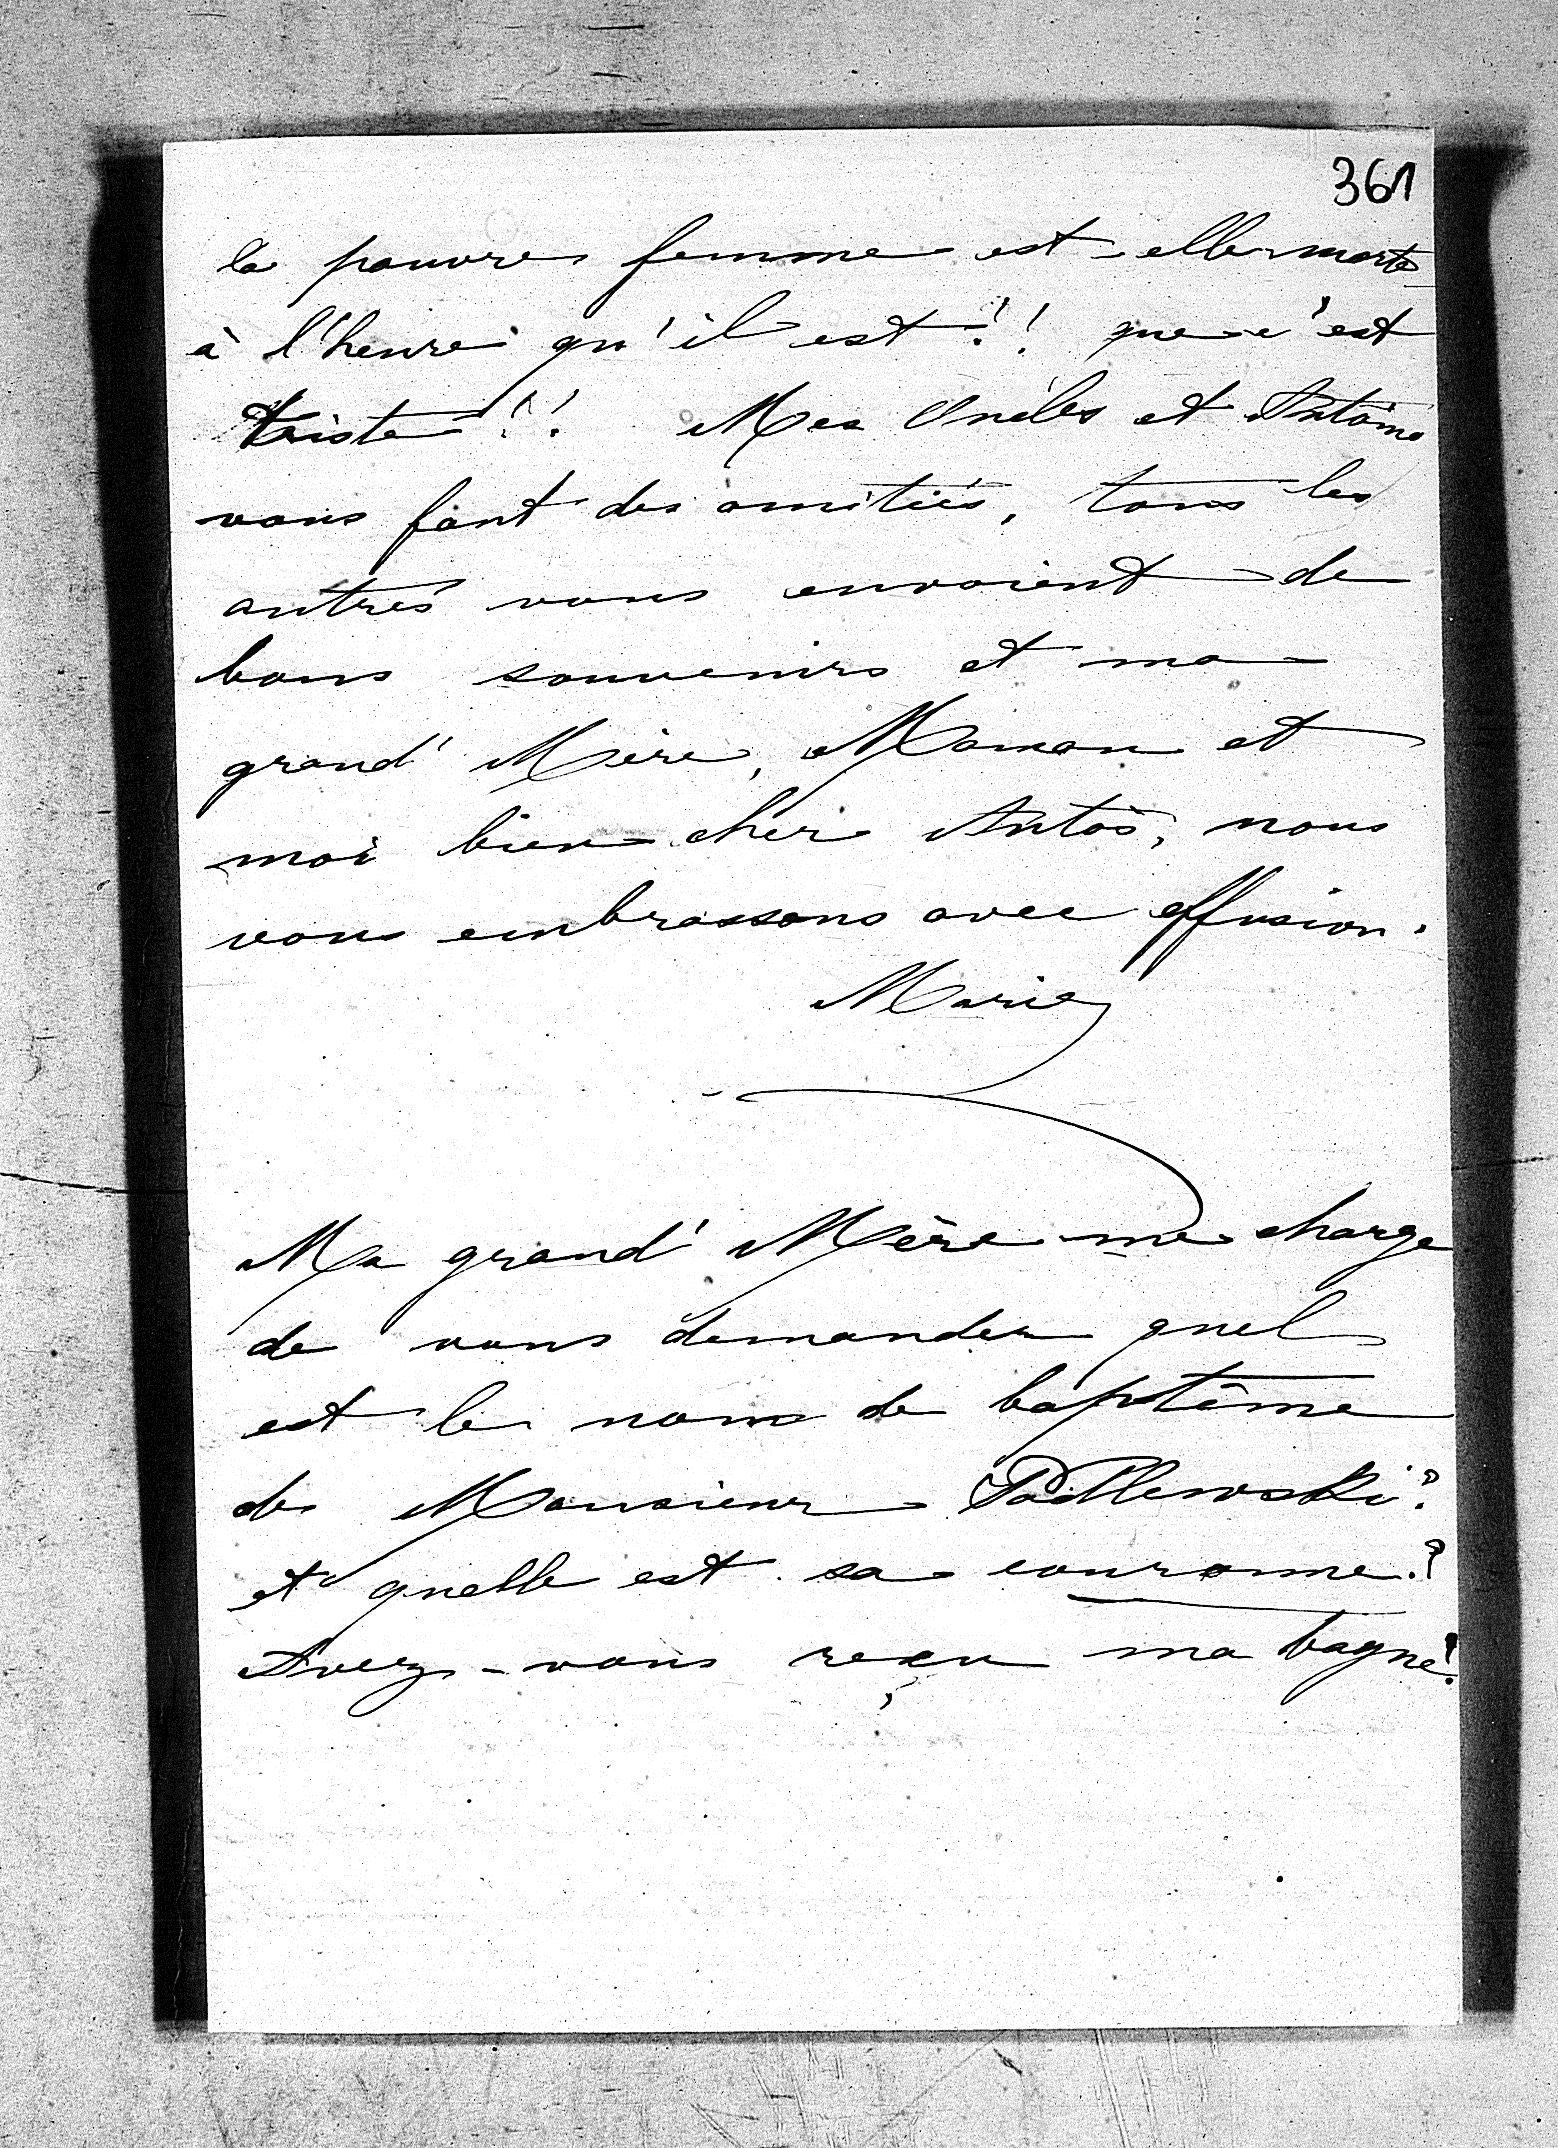 361
la pauvre femme est-elle morte
à l'heure qu'il est!! que c'est
triste!! Mes Oncles et Antoine
vous font des amitiés, tous les
autres vous envoient de
bons souvenirs et ma
grand' Mère, Maman et
moi bien cher Antoś, nous
vous embrassons avec effusion.
Marie
Ma grand' Mère me charge
de vous demander quel
est le nom de baptême
de Monsieur Padlewski?
et quelle est sa couronne?
Avez-vous reçu ma bague?